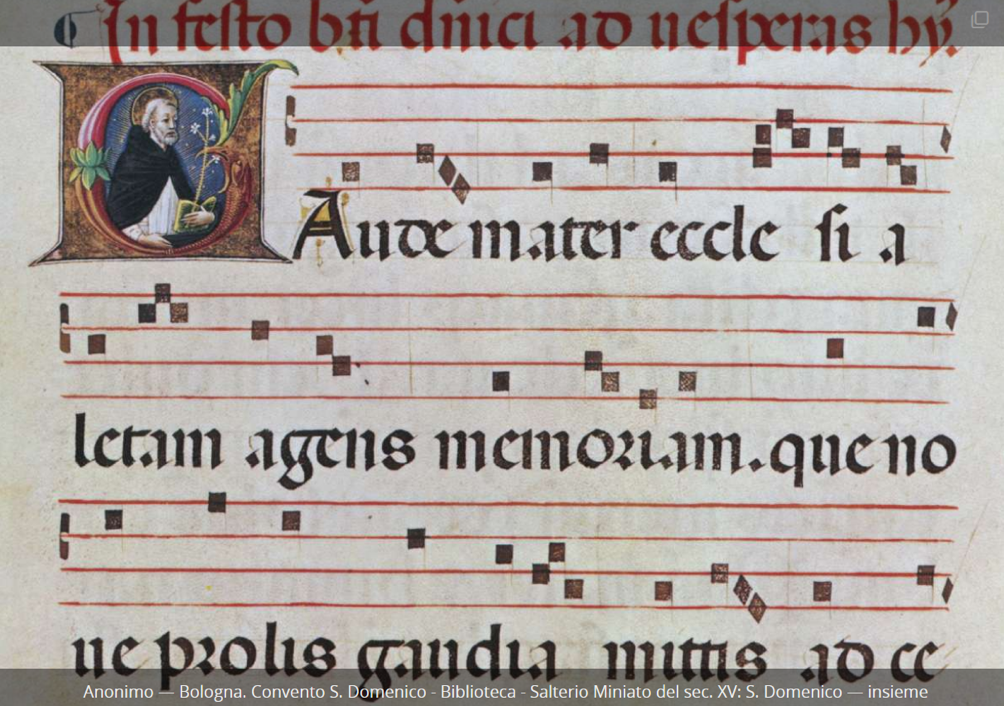 In festo bti dnici ad uesperas hy.
GAude mater eccle si a
letam agens memoriam. que no
ue prolis gaudia mittis ad ce
Anonimo — Bologna. Convento S. Domenico - Biblioteca - Salterio Miniato del sec. XV: S. Domenico — insieme